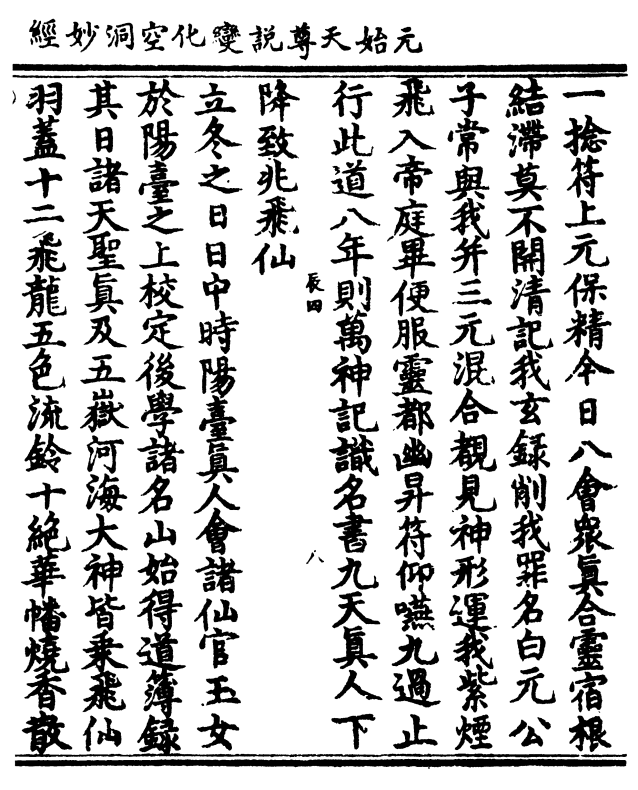 元始天尊説變化空洞妙經
一捻符上元保精今日八會衆眞合靈宿根
結滯莫不開清記我玄錄削我罪名白元公
子常與我并三元混合覩見神形運我紫煙
飛入帝庭畢便服靈都幽昇符仰嚥九過止
行此道八年則萬神記識名書九天眞人下
辰四
八
降致兆飛仙
立冬之日日中時陽臺眞人會諸仙官玉女
於陽臺之上校定後學諸名山始得道簿錄
其日諸天聖眞及五嶽河海大神皆乘飛仙
羽蓋十二飛龍五色流鈴十絶華幡燒香散